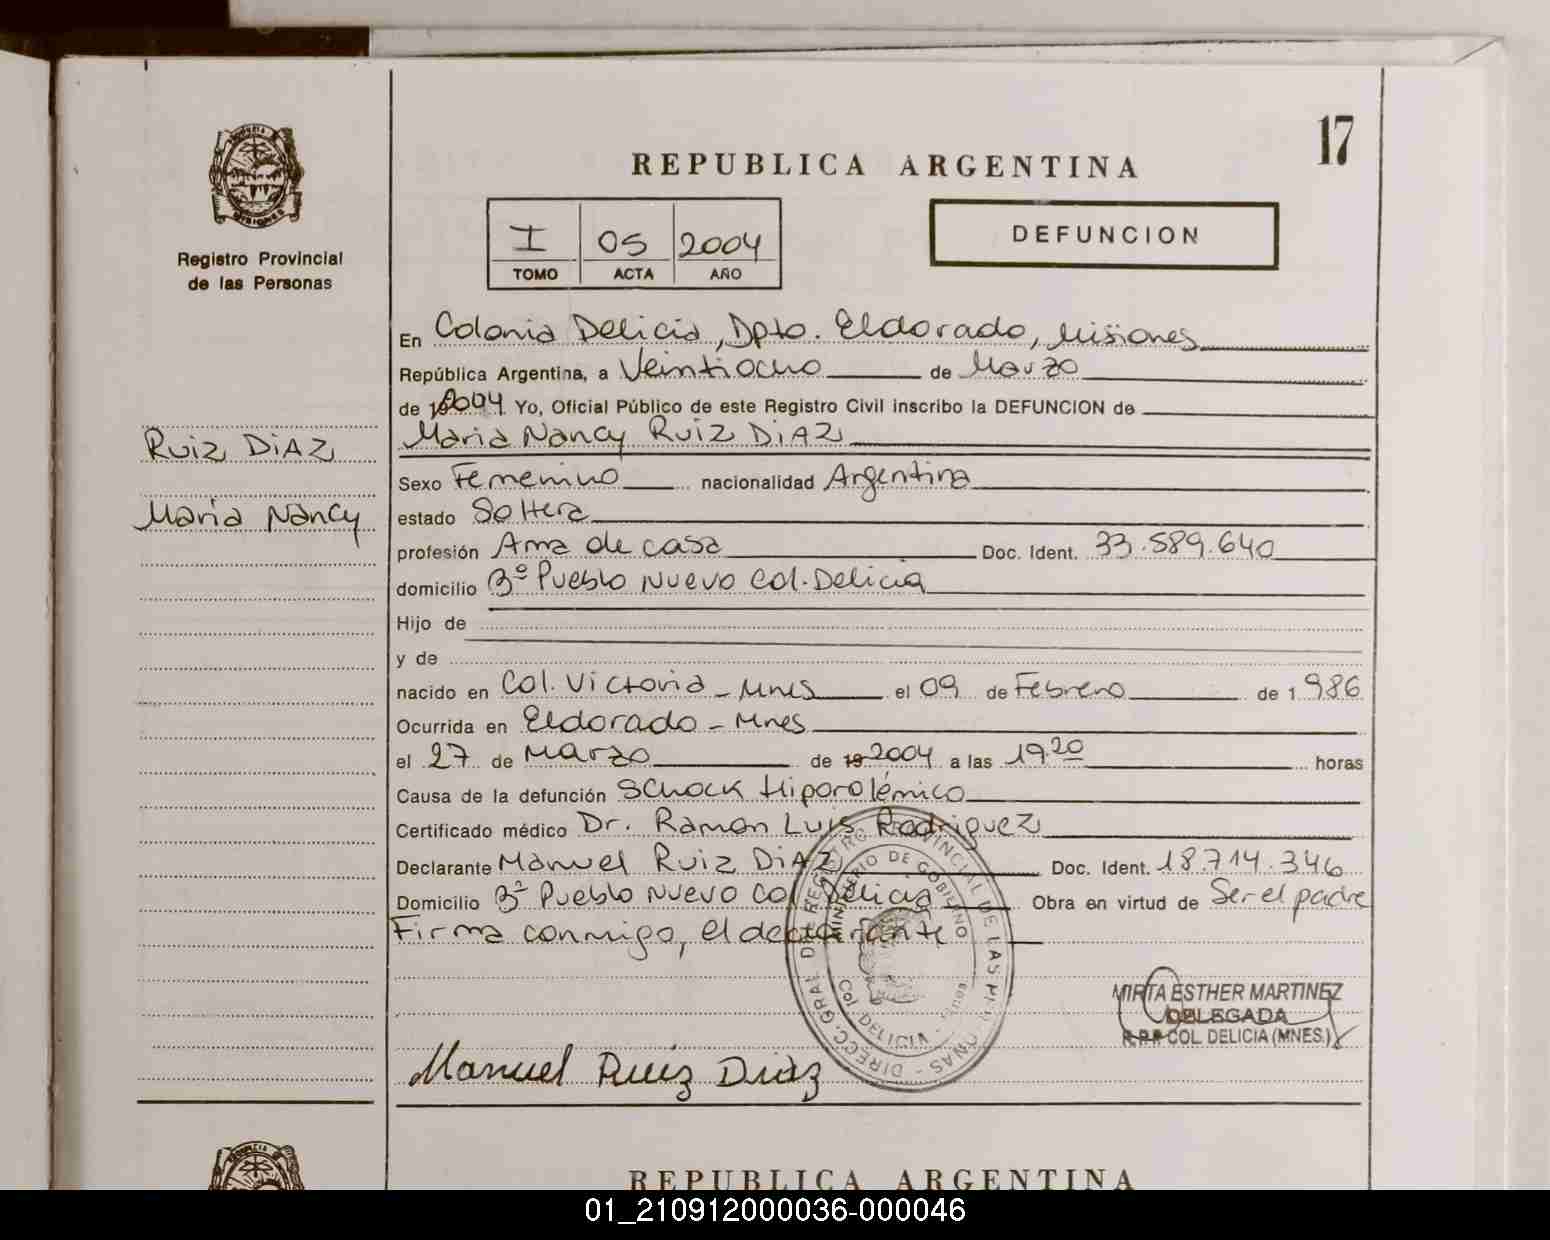 17
REPUBLICA ARGENTINA
Registro Provincial
de las Personas
I 05 2004
TOMO ACTA AÑO
DEFUNCION
En Colonia Delicia, Dpto. Eldorado, Misiones
República Argentina, a Veintiocho de Marzo
de 2004 Yo, Oficial Público de este Registro Civil inscribo la DEFUNCION de
Maria Nancy RUIZ DIAZ
RUIZ DIAZ
Maria Nancy
Sexo Femenino nacionalidad Argentina
estado Soltera
profesión Ama de casa Doc. Ident. 33.589.640
domicilio Bº Pueblo Nuevo Col. Delicia
Hijo de
y de
nacido en Col. Victoria - Mnes el 09 de Febrero de 1.986
Ocurrida en Eldorado - Mnes
el 27 de Marzo de 19 2004 a las 19.20 horas
Causa de la defunción Schock Hiporolémico
Certificado médico Dr. Ramon Luis Rodriguez
Declarante Manuel Ruiz DIAZ Doc. Ident. 18.714.346
Domicilio Bº Pueblo Nuevo Col Delicia Obra en virtud de Ser el padre
Firma conmigo, el declarante
DIRECC. GRAL DE REGISTRO PROVINCIAL DE LAS PERSONAS
MINISTERIO DE GOBIERNO
Col DELICIA - Mnes
MIRTA ESTHER MARTINEZ
DELEGADA
R.P.P COL. DELICIA (MNES.)
Manuel Ruiz Diaz
REPUBLICA ARGENTINA
01_210912000036-000046